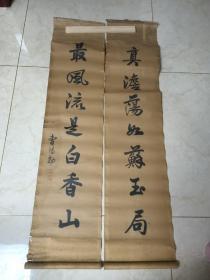 真澹蕩如蘇玉局
最風流是白香山